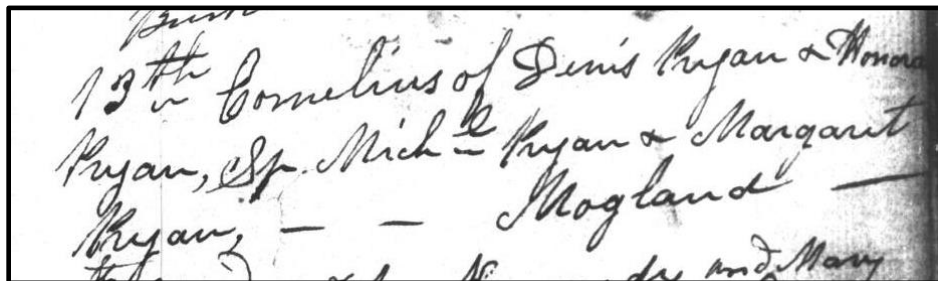 13th Cornelius of Denis Ryan & Honora
Ryan, Sp. Michl Ryan & Margaret
Ryan, — — Mogland —
and Mary